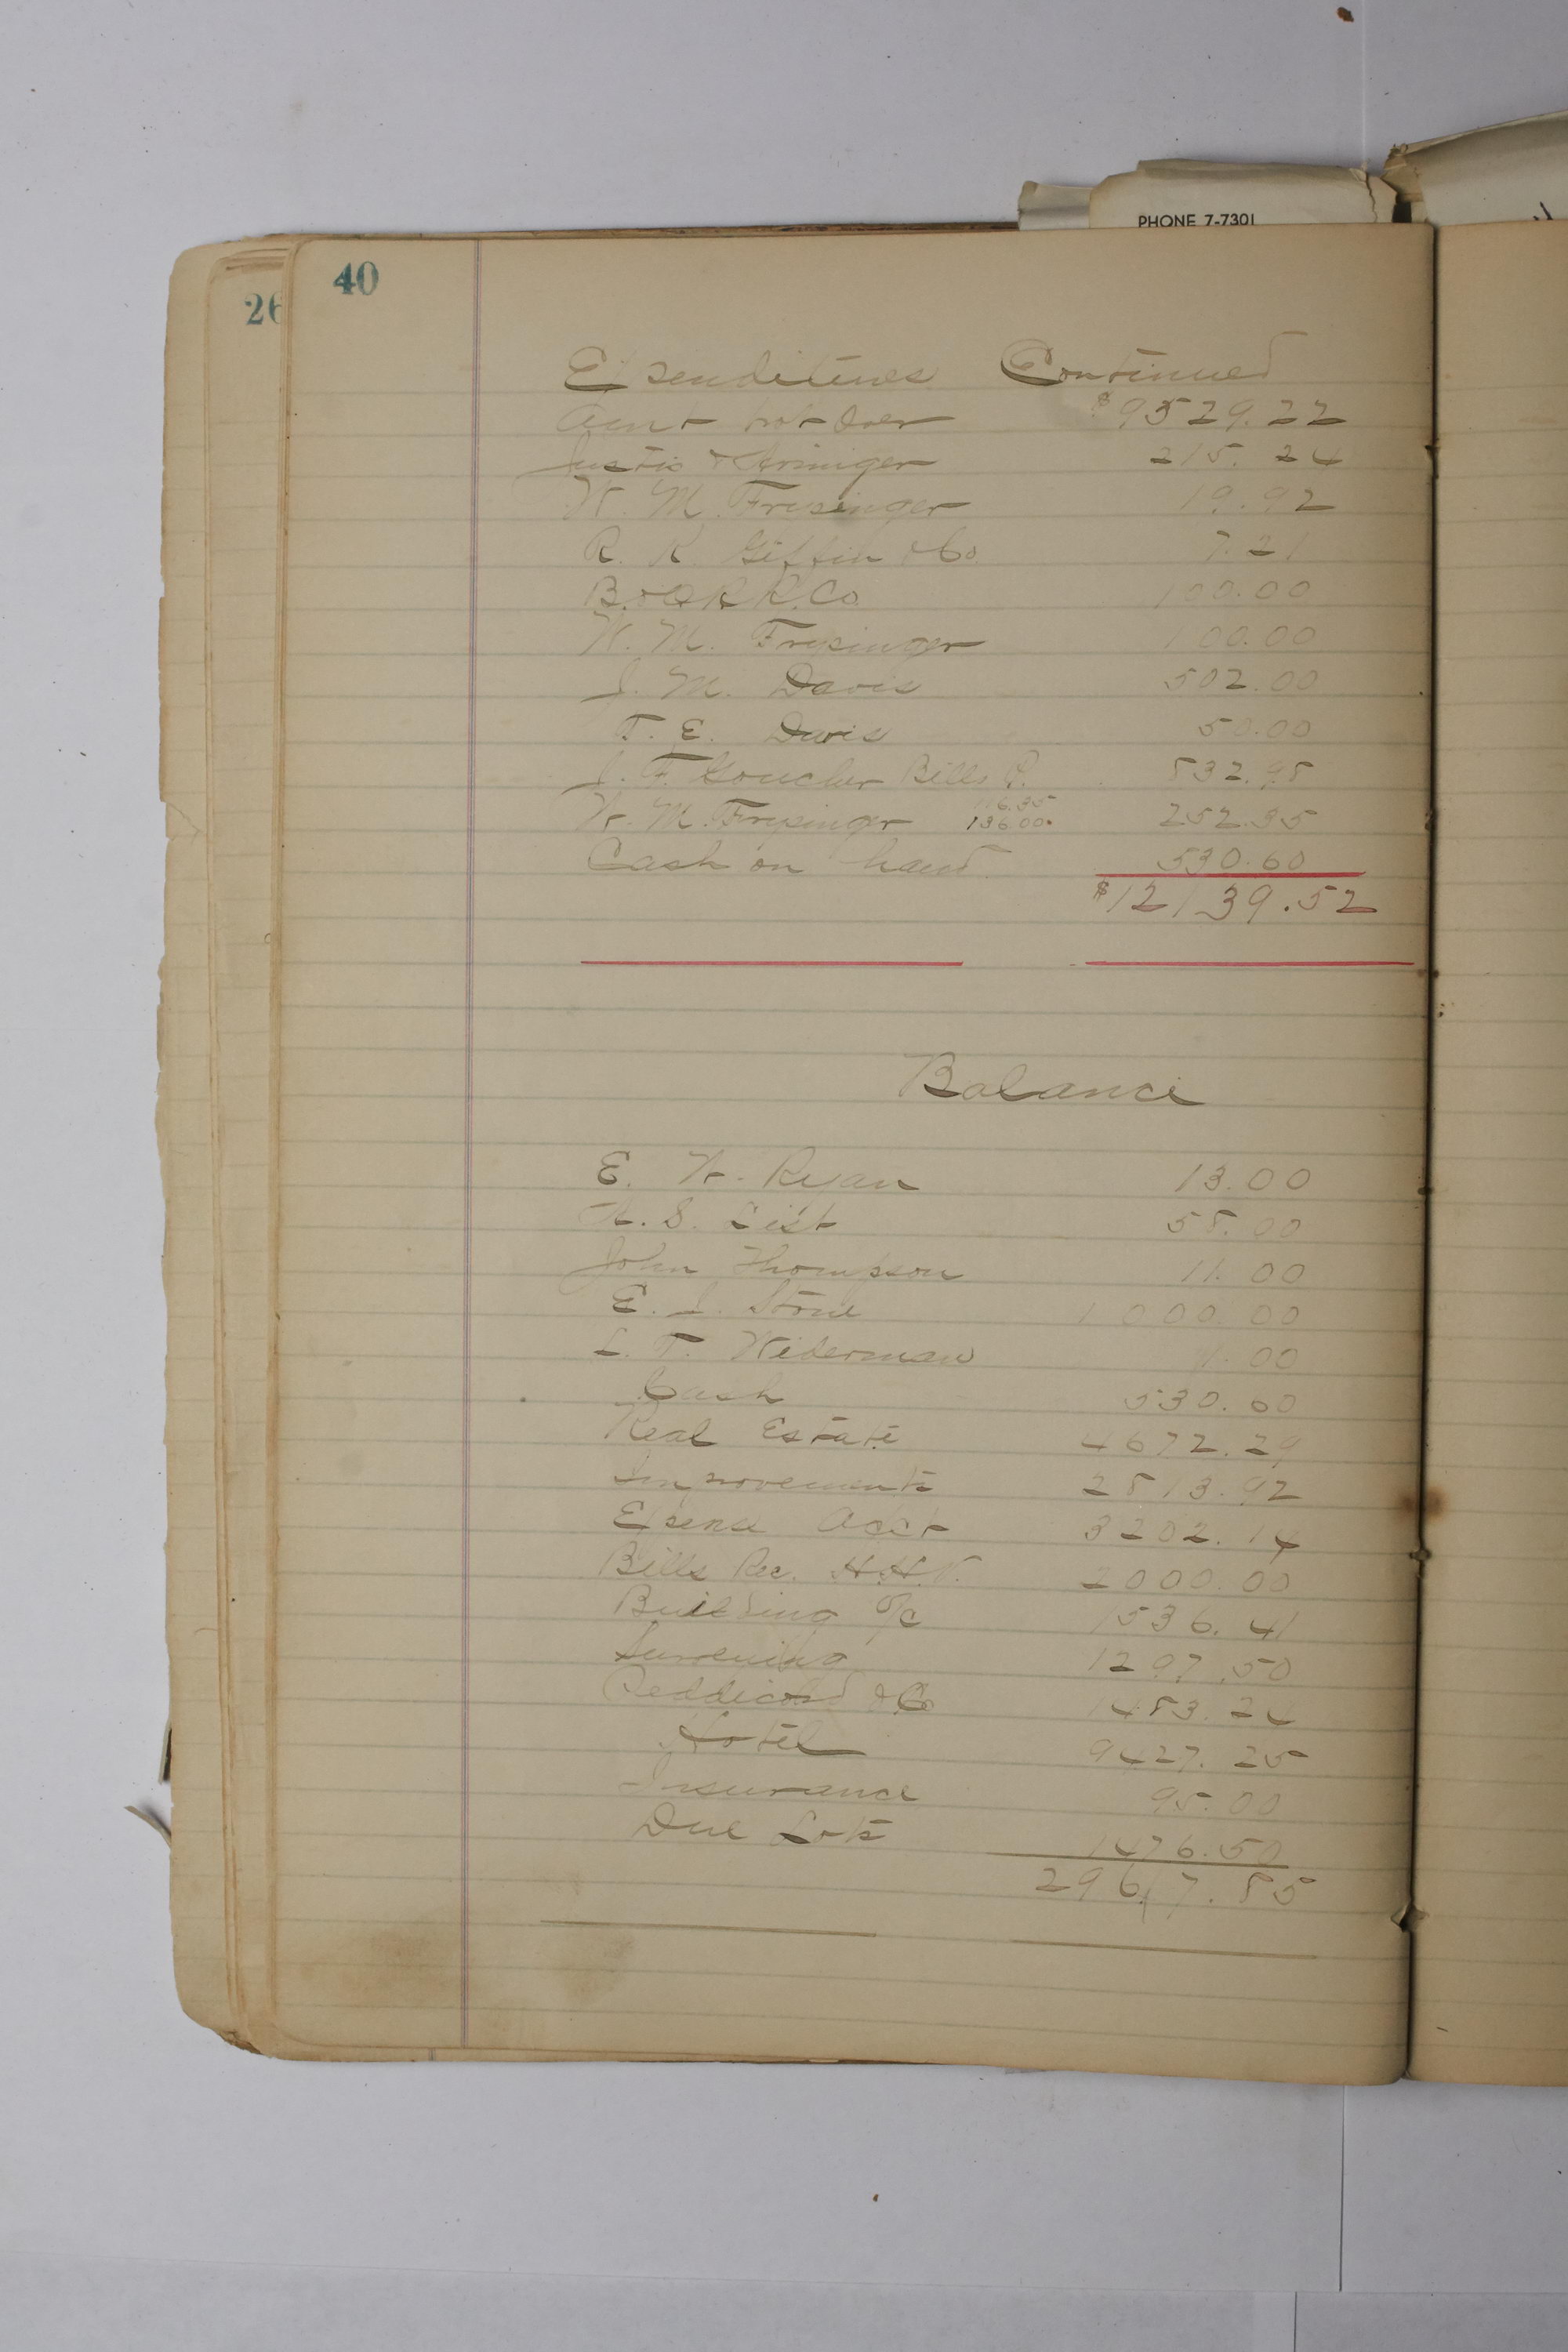 PHONE 7-7301
26
40
Expenditures Continued
Amt brot over $9529.22
Justis & Armiger 215.24
W. M. Frysinger 19.92
R. K. Giffin & Co. 7.21
B. & O R R. Co. 100.00
W. M. Frysinger 100.00
J. M. Davis 502.00
T. E. Davis 50.00
J. F. Goucher Bills P. 832.98
116.35
W. M. Frysinger 136.00 252.35
Cash on hand 530.60
$12139.52
Balance
E. W. Ryan 13.00
W. S. List 58.00
John Thompson 11.00
E. J. Stone 1000.00
L. T. Widerman 1.00
Cash 530.60
Real Estate 4672.29
Improvements 2813.92
Expense Acct 3202.14
Bills Rec. H.H. 2000.00
Building a/c 1536.41
Surveying 1297.50
Reddicord & Co 1483.24
Hotel 9427.25
Insurance 95.00
Due Lots 1476.50
29617.85